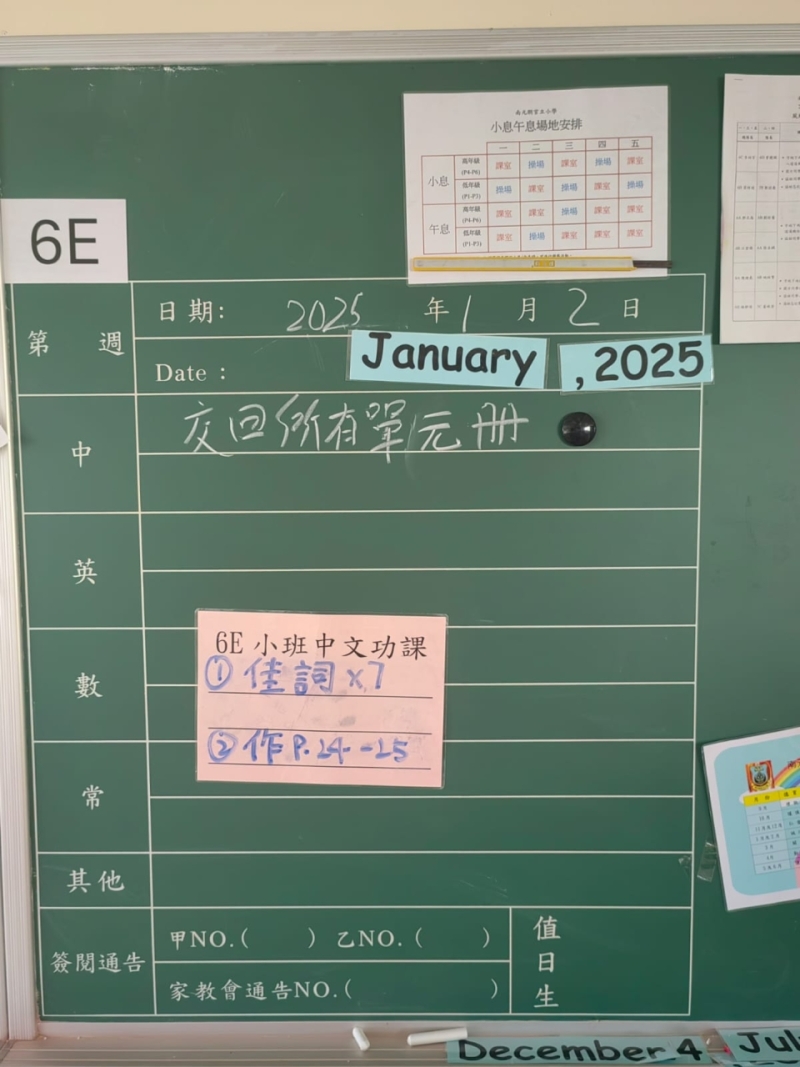 小息午息場地安排
一 二 三 四 五
小息 高年級 (P4-P6) 課室 操場 課室 操場 課室
低年級 (P1-P3) 操場 課室 操場 課室 操場
午息 高年級 (P4-P6) 課室 課室 操場 課室 課室
低年級 (P1-P3) 課室 操場 課室 課室 課室
6E
第 週
日期: 2025 年 1 月 2 日
Date : January , 2025
中
交回所有單元冊
英
數
6E 小班中文功課
① 佳詞 x7
② 作 P.24--25
常
其他
簽閱通告
甲NO.( ) 乙NO.( )
家教會通告NO.( )
值日生
December 4